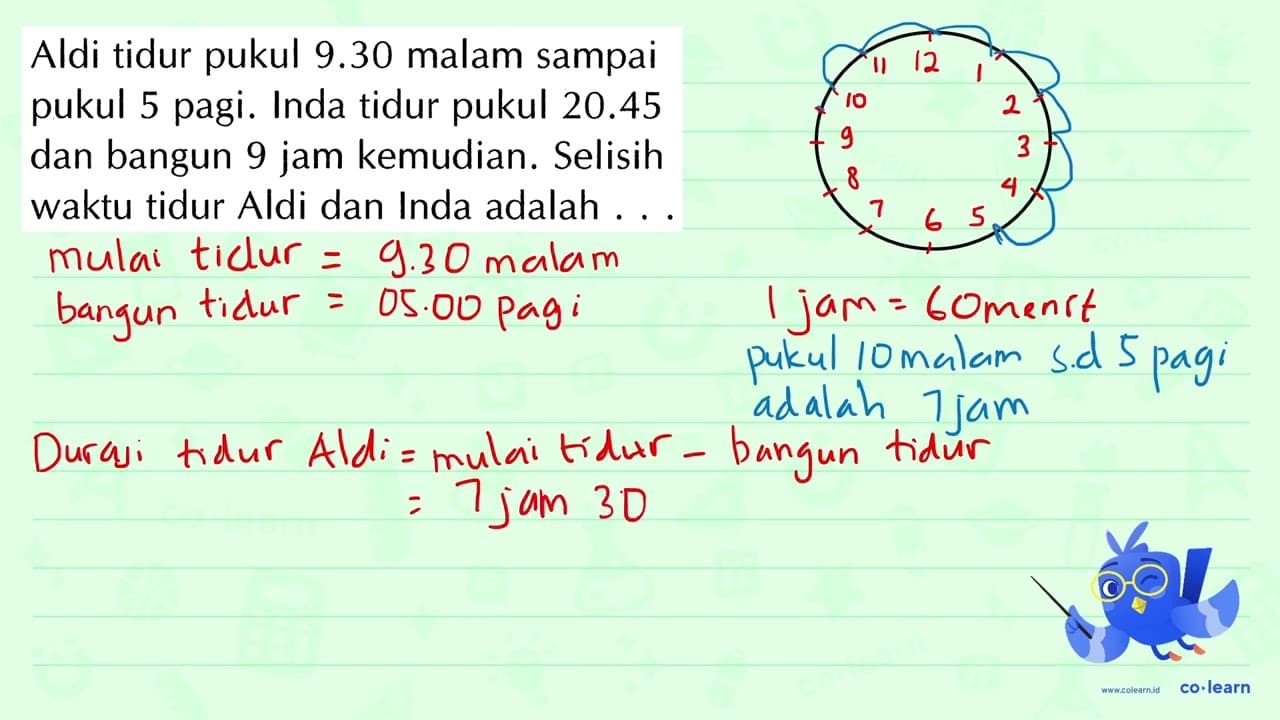 Aldi tidur pukul 9.30 malam sampai
pukul 5 pagi. Inda tidur pukul 20.45
dan bangun 9 jam kemudian. Selisih
waktu tidur Aldi dan Inda adalah . . .
11 12 1
10 2
9 3
8 4
7 6 5
mulai tidur = 9.30 malam
bangun tidur = 05.00 pagi
1 jam = 60 menit
pukul 10 malam s.d 5 pagi
adalah 7 jam
Durasi tidur Aldi = mulai tidur - bangun tidur
= 7 jam 30
www.colearn.id co·learn